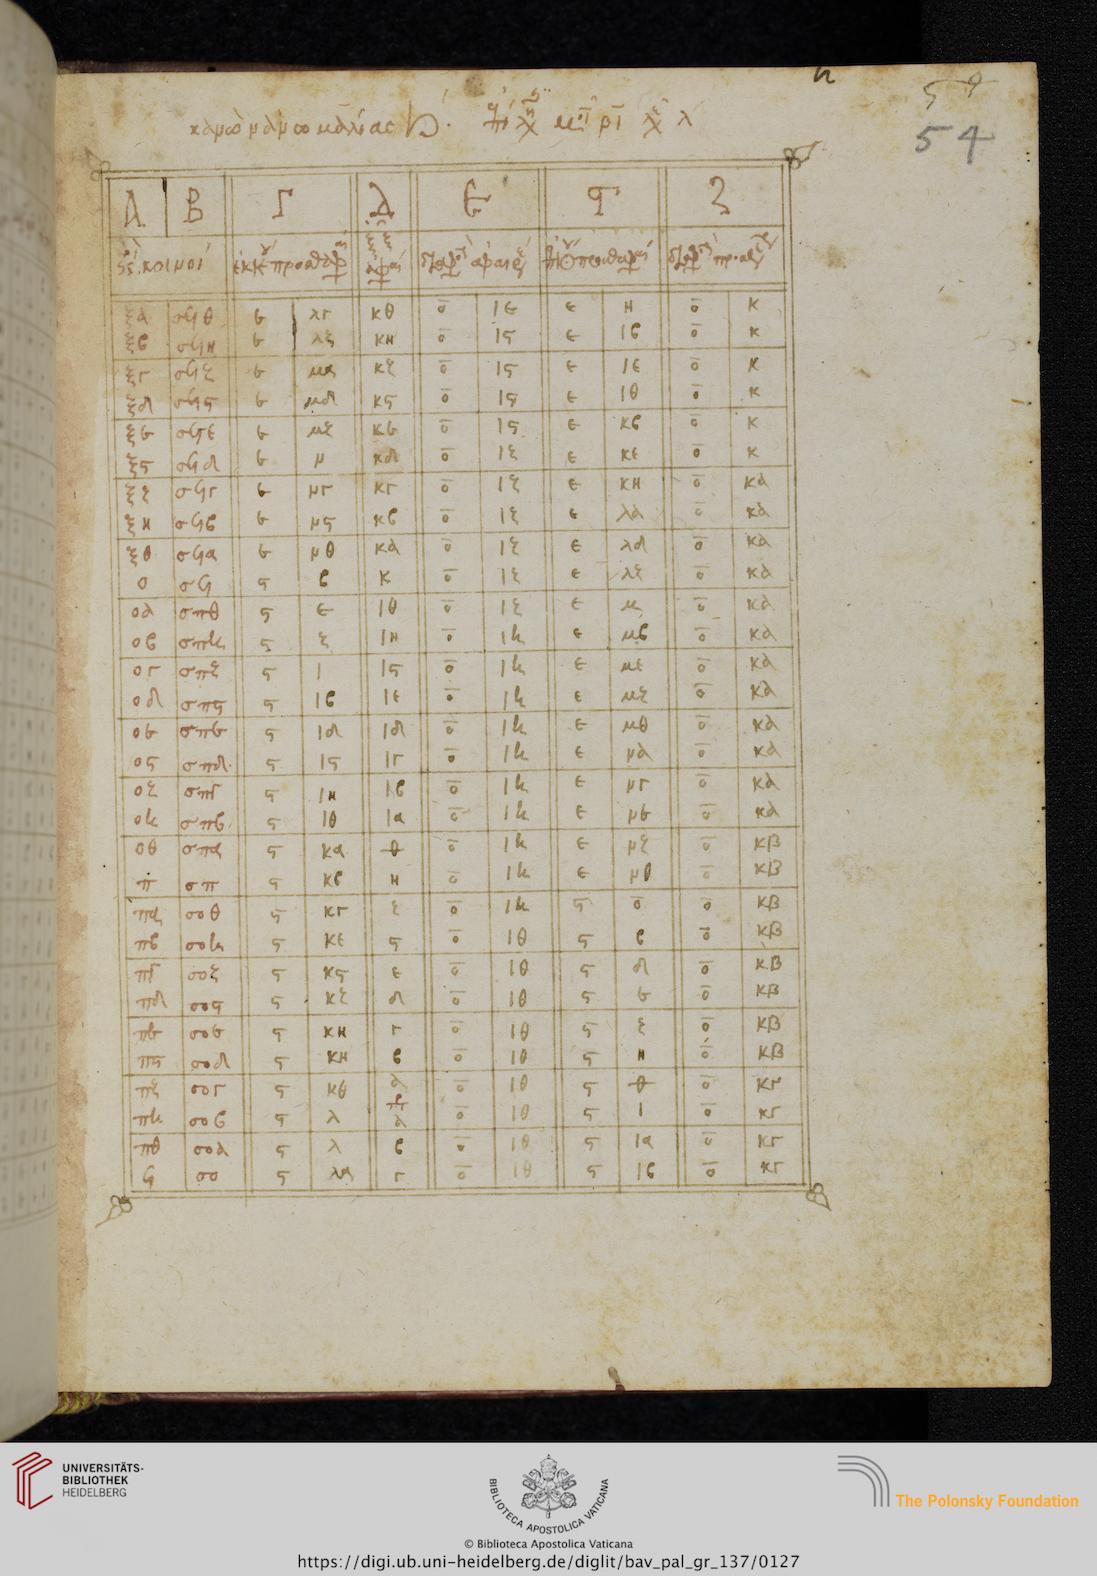 54
Α Β Γ Δ Ε Ϛ Ζ
ξα σϟθ ε λγ κθ ο ιε ε η ο κ
ξβ σϟη ε λζ κη ο ιϛ ε ιβ ο κ
ξγ σϟζ ε μα κζ ο ιϛ ε ιε ο κ
ξδ σϟϛ ε μδ κϛ ο ιϛ ε ιθ ο κ
ξε σϟε ε μζ κε ο ιϛ ε κβ ο κ
ξϛ σϟδ ε ν κδ ο ιζ ε κε ο κ
ξζ σϟγ ε νγ κγ ο ιζ ε κη ο κα
ξη σϟβ ε νϛ κβ ο ιζ ε λα ο κα
ξθ σϟα ε νθ κα ο ιζ ε λδ ο κα
ο σϟ ϛ β κ ο ιζ ε λζ ο κα
οα σπθ ϛ ε ιθ ο ιζ ε μ ο κα
οβ σπη ϛ ζ ιη ο ιη ε μβ ο κα
ογ σπζ ϛ ι ιϛ ο ιη ε με ο κα
οδ σπϛ ϛ ιβ ιε ο ιη ε μζ ο κα
οε σπε ϛ ιδ ιδ ο ιη ε μθ ο κα
οϛ σπδ ϛ ιϛ ιγ ο ιη ε να ο κα
οζ σπγ ϛ ιη ιβ ο ιη ε νγ ο κα
οη σπβ ϛ ιθ ια ο ιη ε νε ο κα
οθ σπα ϛ κα θ ο ιη ε νζ ο κβ
π σπ ϛ κβ η ο ιη ε νθ ο κβ
πα σοθ ϛ κγ ζ ο ιη ϛ ο ο κβ
πβ σοη ϛ κε ϛ ο ιθ ϛ β ο κβ
πγ σοζ ϛ κϛ ε ο ιθ ϛ δ ο κβ
πδ σοϛ ϛ κζ δ ο ιθ ϛ ε ο κβ
πε σοε ϛ κη γ ο ιθ ϛ ζ ο κβ
πϛ σοδ ϛ κη β ο ιθ ϛ η ο κβ
πζ σογ ϛ κθ α ο ιθ ϛ θ ο κγ
πη σοβ ϛ λ α ο ιθ ϛ ι ο κγ
πθ σοα ϛ λ β ο ιθ ϛ ια ο κγ
ϟ σο ϛ λα γ ο ιθ ϛ ιβ ο κγ
UNIVERSITÄTS-
BIBLIOTHEK
HEIDELBERG
BIBLIOTECA APOSTOLICA VATICANA
The Polonsky Foundation
© Biblioteca Apostolica Vaticana
https://digi.ub.uni-heidelberg.de/diglit/bav_pal_gr_137/0127